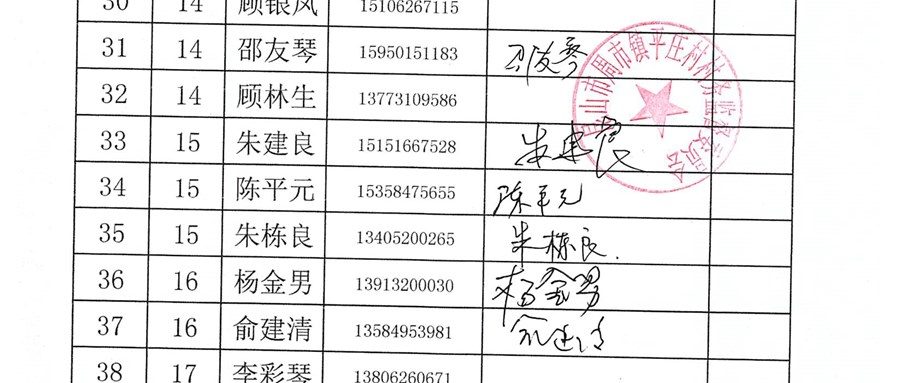 30 14 顾银凤 15106267115
31 14 邵友琴 15950151183 邵友琴
32 14 顾林生 13773109586
33 15 朱建良 15151667528 朱建良
34 15 陈平元 15358475655 陈平元
35 15 朱栋良 13405200265 朱栋良
36 16 杨金男 13913200030 杨金男
37 16 俞建清 13584953981 俞建清
38 17 李彩琴 13806260671
昆山市周市镇平庄村村务监督委员会